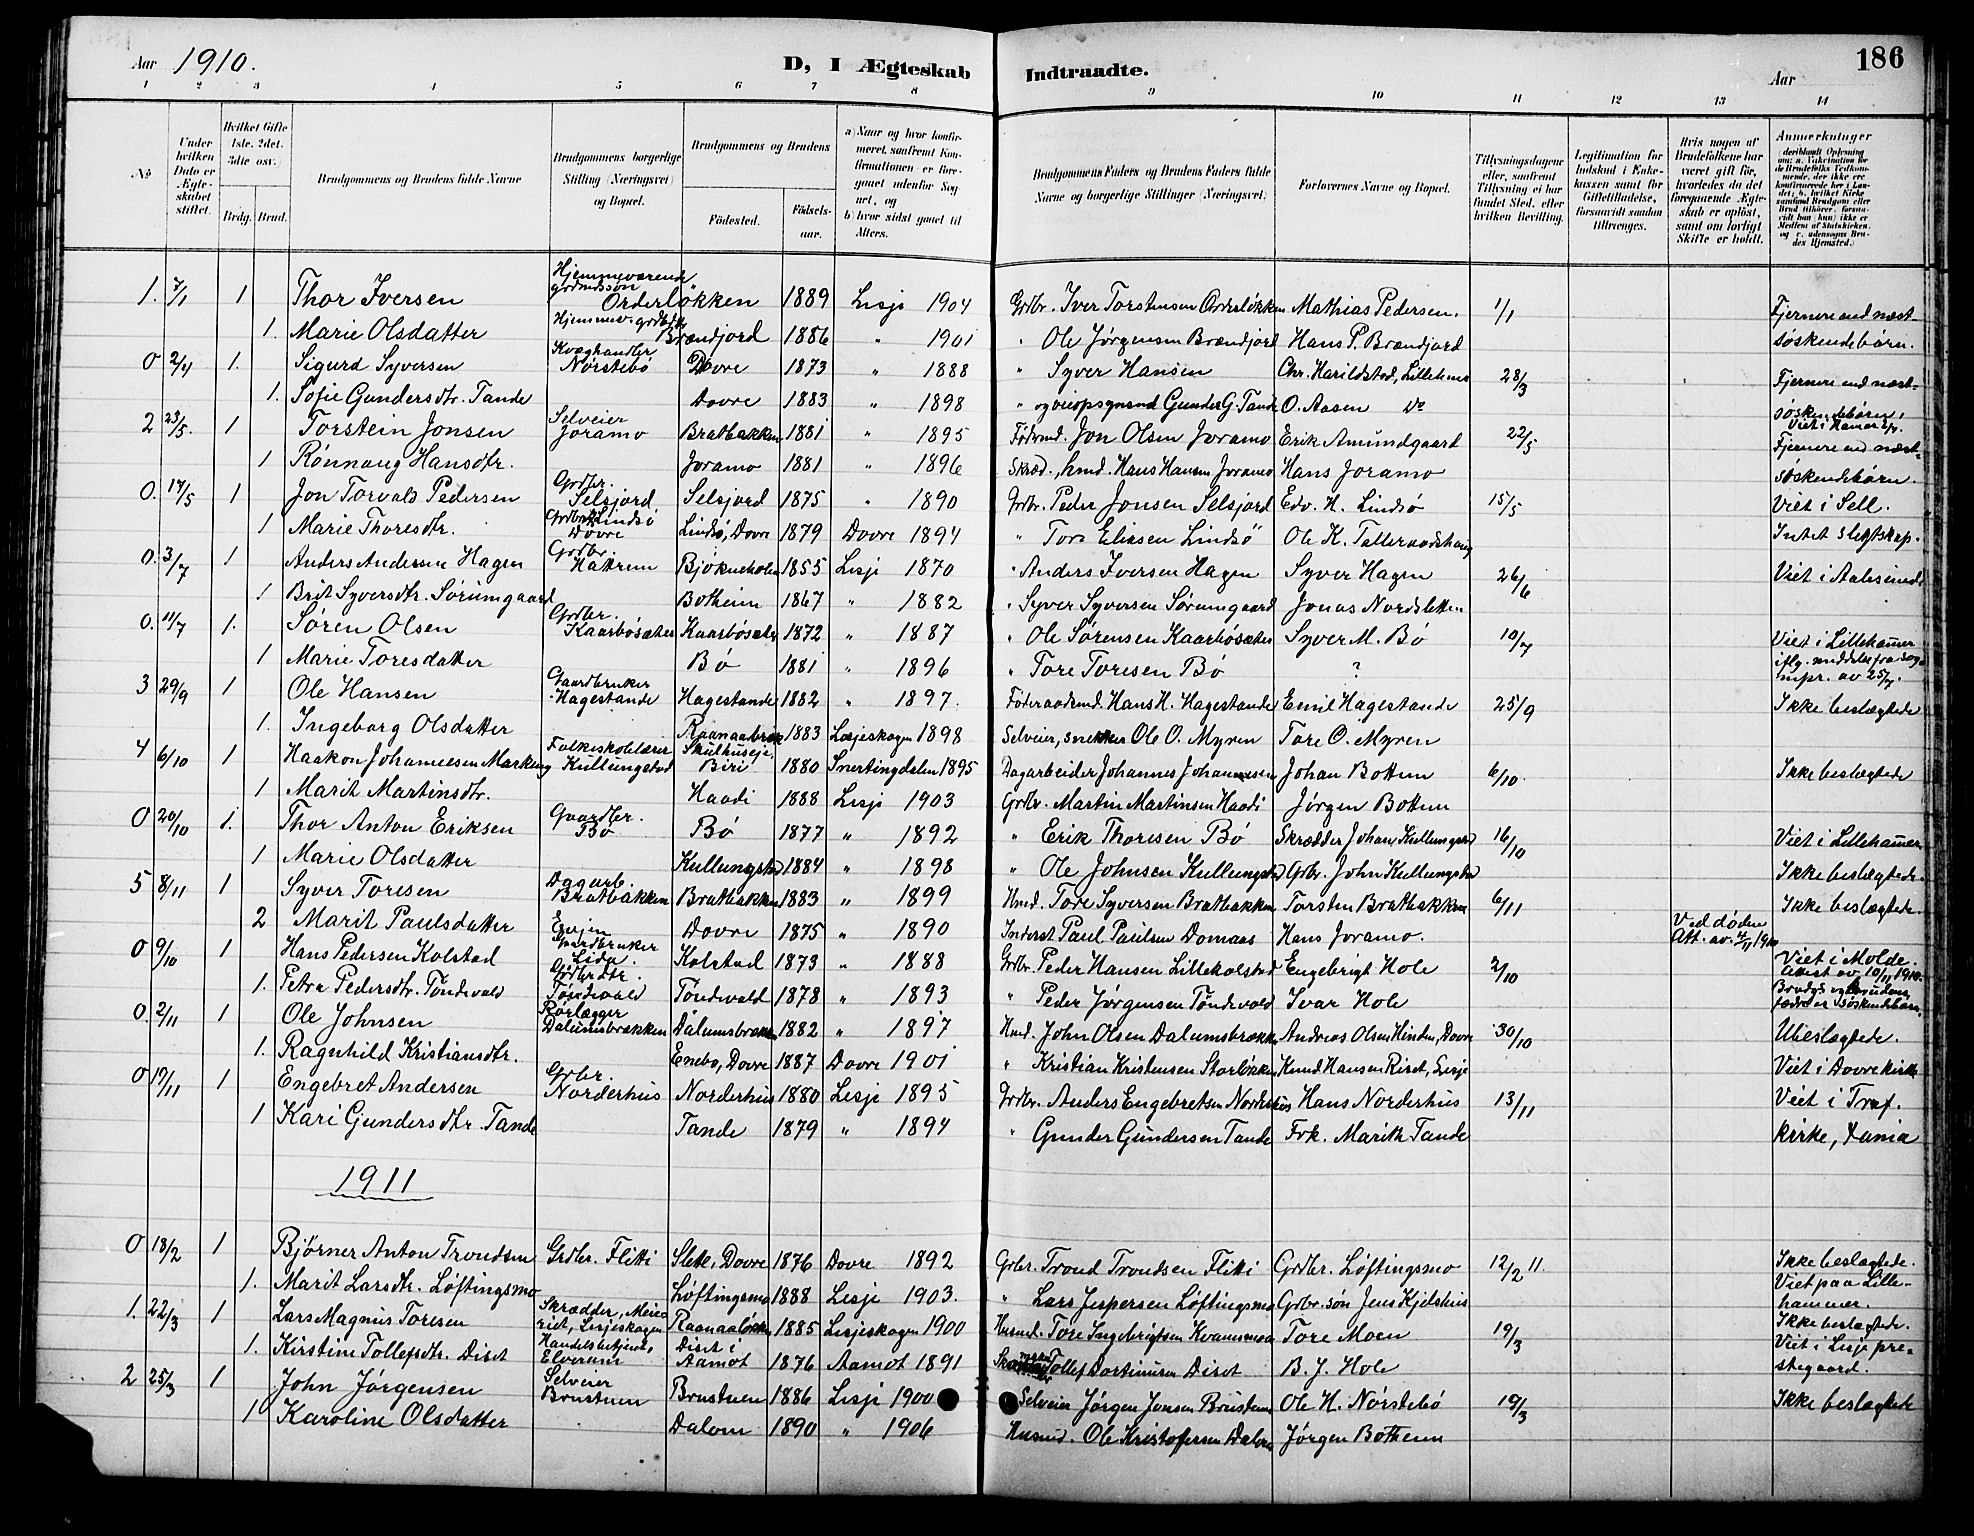 Aar 1910. D, I Ægteskab Indtraadte. Aar 186
1 2 3 4 5 6 7 8 9 10 11 12 13 14
No
Under hvilken Dato er Ægteskabet stiftet.
Hvilket Gifte 1ste, 2det, 3die osv.)
Brdg. Brud.
Brudgommens og Brudens fulde Navne
Brudgommens borgerlige Stilling (Næringsvei) og Bopæl.
Brudgommens og Brudens
Fødested. Fødselsaar.
a) Naar og hvor konfirmeret, saafremt Konfirmationen er foregaaet udenfor Sognet, og
b) hvor sidst gaaet til Alters.
Brudgommens Faders og Brudens Faders fulde Navne og borgerlige Stillinger (Næringsvei).
Forlovernes Navne og Bopæl.
Tillysningsdagene eller, saafremt Tillysning ei har fundet Sted, efter hvilken Bevilling.
Legitimation for Indskud i Enkekassen samt for Giftetilladelse, forsaavidt saadan tiltrænges.
Hvis nogen af Brudefolkene har været gift før, hvorledes da det foregaaende Ægteskab er opløst, samt om lovligt Skifte er holdt.
Anmærkninger
1. 7/1 1 Thor Iversen Hjemmeværende grdmdssøn Orderløkken " 1889 Lesje 1904 Grdbr. Iver Torstensen Orderløkken Mathias Pedersen. 1/1 Fjernere end næst-
1. Marie Olsdatter Hjemmev. grdbrdtr Brændjord 1886 " 1901 " Ole Jørgensen Brændjord Hans P. Brændjord søskendebørn.
0 2/4 1. Sigurd Syversen Kvæghandler Nørstebø Dovre 1873 " 1888 " Syver Hansen Chr. Harildstad, Lillehmr 28/3 Fjernere end næst-
1. Sofie Gundersdtr. Tande Dovre 1883 " 1898 " og veiopsynsmd Gunder G. Tande O. Aasen Do søskendebørn.
2 23/5. 1 Torstein Jonsen Selveier Joramo Bratbakken 1881 " 1895 Fødrmd. Jon Olsen Joramo Erik Amundgaard 22/5 Fjernere end næst-
1 Rønnaug Hansdtr. Joramo 1881 " 1896 Skræd., hmd. Hans Hansen Joramo Hans Joramo søskendebørn.
0. 17/5 1 Jon Torvals Pedersen Grdbr. Selsjord Selsjord 1875 " 1890 Grdbr. Peder Jonsen Selsjord Edv. H. Lindsø 15/5 Viet i Sell.
1 Marie Thoresdtr. Lindsø Dovre Lindsø, Dovre 1879 Dovre 1894 " Tore Eliasen Lindsö Ole K. Talleraashaug Intet slegtskap.
0. 3/7 1 Anders Andersen Hagen Grdbr. Hattrem Bjøkneholen 1855 Lesje 1870 " Anders Iversen Hagen Syver Hagen 26/6 Viet i Aalesund
1 Brit Syversdtr. Sørumgaard Botheim 1867 " 1882 " Syver Syversen Sørumgaard Jonas Nordsletten
0. 11/7 1. Søren Olsen Grdbr. Kaarbøsæter Kaarbøsæter 1872 " 1887 " Ole Sørensen Kaarbøsæter Syver M. Bø 10/7 Viet i Lillehammer
1 Marie Toresdatter Bø 1881 " 1896 " Tore Toresen Bø ? iflg. meddelse fra sog-
3 29/9 1 Ole Hansen Gaardbruker Hagestande Hagestande 1882 " 1897. Føderaadsmd. Hans H. Hagestande Emil Hagestande 25/9 Ikke beslegtede
1. Ingeborg Olsdatter Raanaabræk 1883 Lesjeskogen 1898 Selveier, snekker Ole O. Myren Tore O. Myren
4 6/10 1 Haakon Johannesen Markeng Folkeskolelærer Kullungstad Skulhuseje, Biri 1880 Snertingdalen 1895 Dagarbeider Johannes Johannessen Johan Bottem 6/10 Ikke beslegtede
1 Marit Martinsdtr. Haadi 1888 Lesje 1903 Grdbr. Martin Martinsen Haadi Jørgen Bottem
0 20/10 1. Thor Anton Eriksen Gaardbr. Bø Bø 1877 " 1892 " Erik Thoresen Bø Skrædder Johans Kullungstad 16/10 Viet i Lillehammer
1 Marie Olsdatter Kullungstad 1884 " 1898 " Ole Johnsen Kullungstad Grbr. John Kullungstad Ikke beslægtede.
5 8/11 1 Syver Toresen Dagarb. Bratbakken Bratbakken 1883 " 1899 Hmd. Tore Syversen Bratbakken Torsten Bratbakken 6/11 Ikke beslegtede.
2 Marit Paulsdatter Dovre 1875 " 1890 Inderst Paul Paulsen Domaas Hans Joramo. Ved døden Att. av 4/11 1910
0 9/10 1 Hans Pedersen Kolstad Gaardbruker Lida. Kolstad 1873 " 1888 Grdbr. Peder Hansen Lillekolstad Engebrigt Hole 2/10 Viet i Molde. Attest av 10/11 1910.
1. Petra Pedersdtr. Tøndevold Grdbrdtr. Tøndevold Tøndevold 1878 " 1893 " Peder Jørgensen Tøndevold Ivar Hole
0. 2/11 1 Ole Johnsen Rørlægger Dalumsbrækken Dalumsbrækken 1882 " 1897 Hmd. John Olsen Dalumsbrækken Andreas Olsen Hinden, Dovre 30/10 Ubeslegtede.
1. Ragnhild Kristiansdtr. Enebo, Dovre 1887 Dovre 1901 " Kristian Kristensen Storløkken Knud Hansen Riset, Lesje Viet i Dovre kirke
0 19/11 1 Engebret Andersen Grbr. Norderhus Norderhus 1880 Lesje 1895 Grdbr. Anders Engebretsen Norderhus Hans Norderhus 13/11 Viet i Tref.
1 Kari Gundersdtr. Tande Tande 1879 " 1894 " Gunder Gundersen Tande Frk. Marith Tande kirke, Xania
1911
0 18/2 1 Bjørner Anton Trondsen Grdbr. Flitti Slete, Dovre 1876 Dovre 1892 Grbr. Trond Trondsen Flitti Grdbr. Løftingsmo 12/2 11. Ikke beslegtede.
1. Marit Larsdtr. Løftingsmo Løftingsmo 1888 Lesje 1903. " Lars Jespersen Løftingsmo Grbr.søn Jens Kjelshus Viet paa Lille-
hammer.
1. 22/3 1 Lars Magnus Toresen Skrædder, Meieriet, Lesjeskogen Raanaaløkken 1885 Lesjeskogen 1900 Husmd. Tore Ingebrigtsen Kvamsmoen Tore Moen 19/3 Ikke beslegtede.
1. Kirstine Tollefsdtr. Diset Handelsbetjent, Elverum Diset i Aamot 1876 Aamot 1891 Tollef Dortinusen Diset B. J. Hole Viet i Lesje pre-
stegaard.
2 25/3 1 John Jørgensen Selveier Brustuen Brustuen 1886 Lesje 1900 Selveier Jørgen Jonsen Brustuen Ole H. Nørstebø 19/3 Ikke beslegtede
1 Karoline Olsdatter Dalom 1890 " 1906 Husmd. Ole Kristofersen Dalom Jørgen Bothem